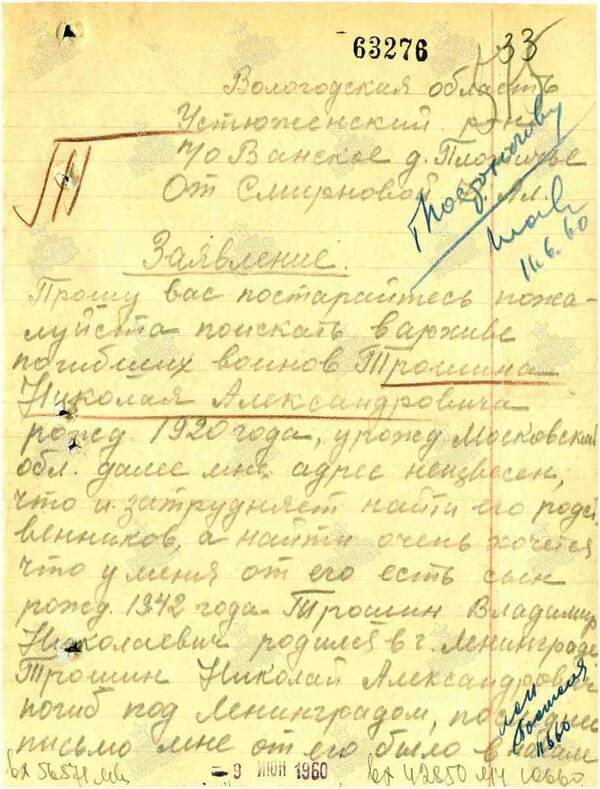 63276
33
Вологодская область
Устюженский р-н
п/о Ванское д. Плотичье
От Смирновой Ал.
Заявление.
Прошу вас постарайтесь пожа-
луйста поискать в архиве
погибших воинов Трошина
Николая Александровича
рожд. 1920 года, урожд. Московский
обл. далее мне адрес неизвесен,
что и затрудняет найти его родст
венников, а найти очень хочется
что у меня от его есть сын
рожд. 1942 года - Трошин Владимир
Николаевич родился в г. Ленинграде
Трошин Николай Александрович
погиб под Ленинградом, последнее
письмо мне от его было в начале
11.6.60
вх 56571
- 9 ИЮН 1960
вх 42850